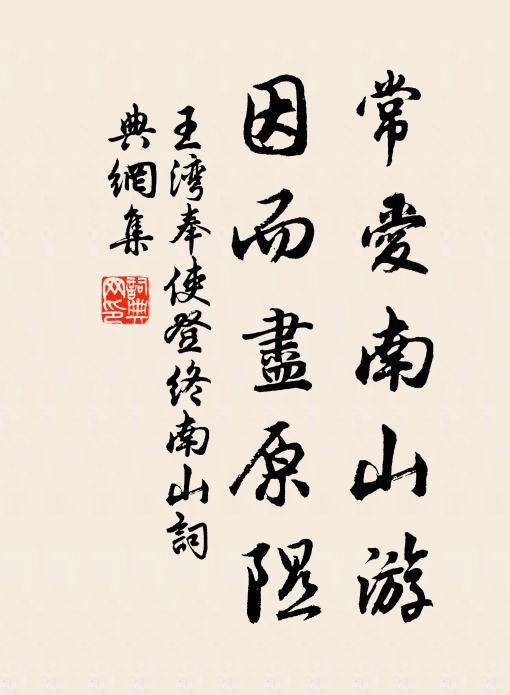 常愛南山游
因而盡原隰
王湾奉使登终南山詞
典網集
詞典
网印